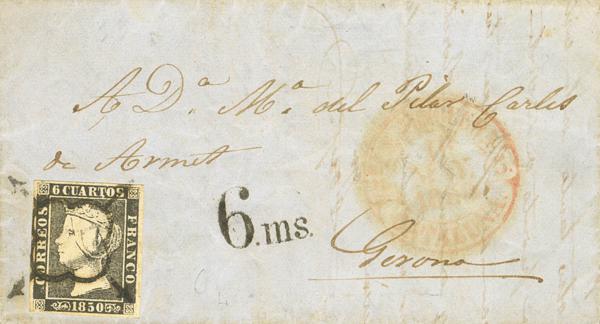 A Dª Mª del Pilar Carles
de Armet
6 CUARTOS
CORREOS
FRANCO
1850
6.ms.
Gerona